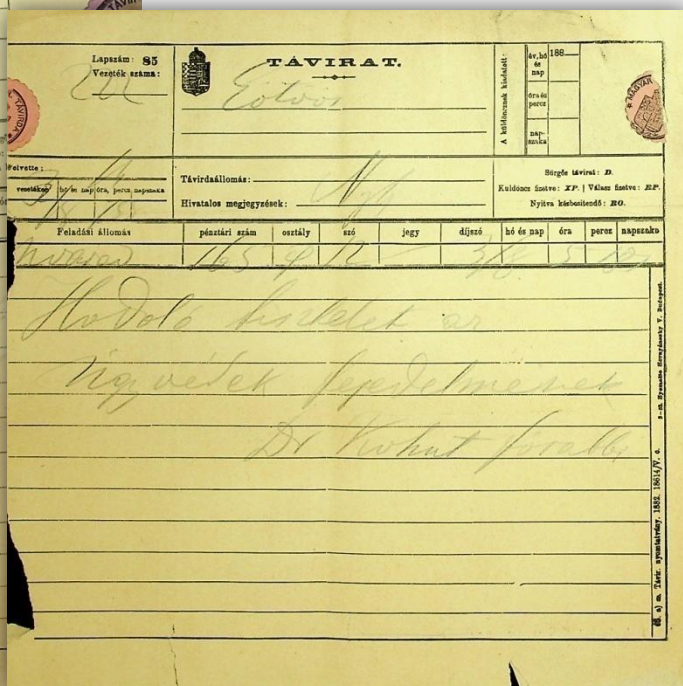 Lapszám: 85
Vezeték száma:
TÁVIRAT.
Eötvös
A küldöncznek kiadatott:
év, hó és nap
188
óra és percz
nap-szaka
MAGYAR
TÁVIRDA
Felvette:
vezetéken
hó és nap
óra, percz
napszaka
Távirdaállomás:
Nyh
Hivatalos megjegyzések:
Sürgős távirat: D.
Küldöncz fizetve: XP. | Válasz fizetve: RP.
Nyitva kézbesitendő: RO.
Feladási állomás
pénztári szám
osztály
szó
jegy
díjszó
hó és nap
óra
percz
napszaka
165 12 3/8 5
Hodoló tisztelet az
ügyvédek fejedelmének
Dr Kohut főrabbi
éB. a) m. Távir. nyomtatvány. 1882. 18614/V. c.
Nyomatta Hornyánszky V. Budapest.